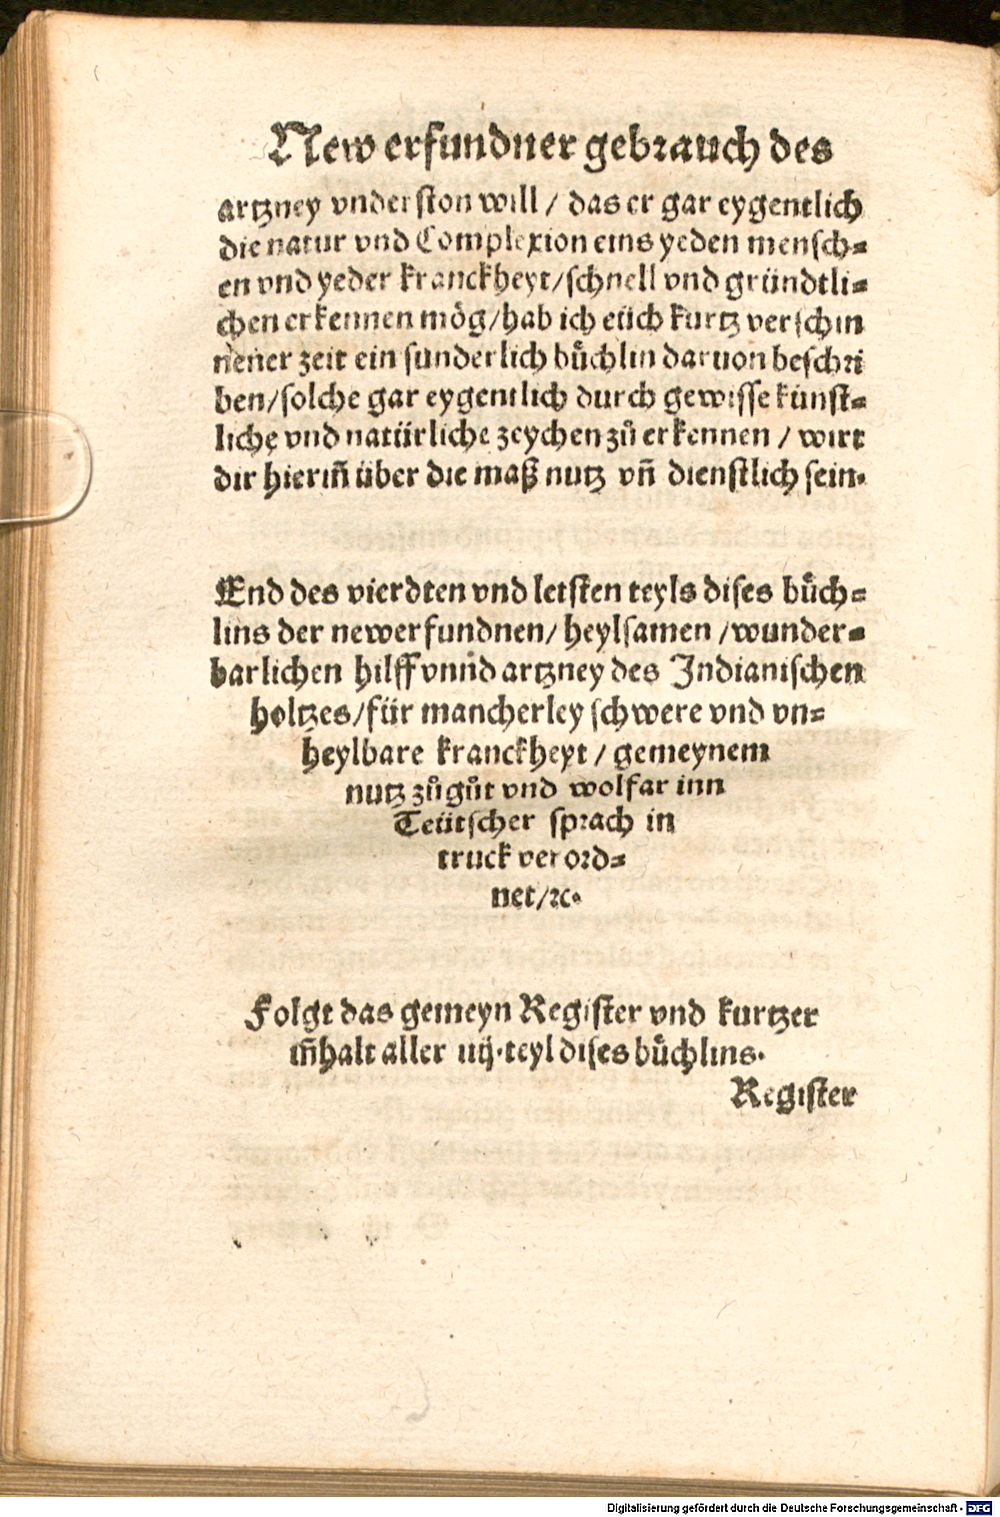 New erfundner gebrauch des
artzney vnderston will / das er gar eygentlich
die natur vnd Complexion eins yeden mensch=
en vnd yeder kranckheyt/schnell vnd gründtli=
chen erkennen mög/hab ich eüch kurtz verschin
nener zeit ein sunderlich bůchlin daruon beschri
ben/solche gar eygentlich durch gewisse künst=
liche vnd natürliche zeychen zů erkennen / wirt
dir hierin̄ über die maß nutz vn̄ dienstlich sein.
End des vierdten vnd letsten teyls dises bůch=
lins der newerfundnen/ heylsamen /wunder=
barlichen hilff vnnd artzney des Indianischen
holtzes/für mancherley schwere vnd vn=
heylbare kranckheyt / gemeynem
nutz zůgůt vnd wolfar inn
Teütscher sprach in
truck verord=
net/ꝛc.
Folgt das gemeyn Register vnd kurtzer
in̄halt aller iiij.teyl dises bůchlins.
Register
Digitalisierung gefördert durch die Deutsche Forschungsgemeinschaft - DFG